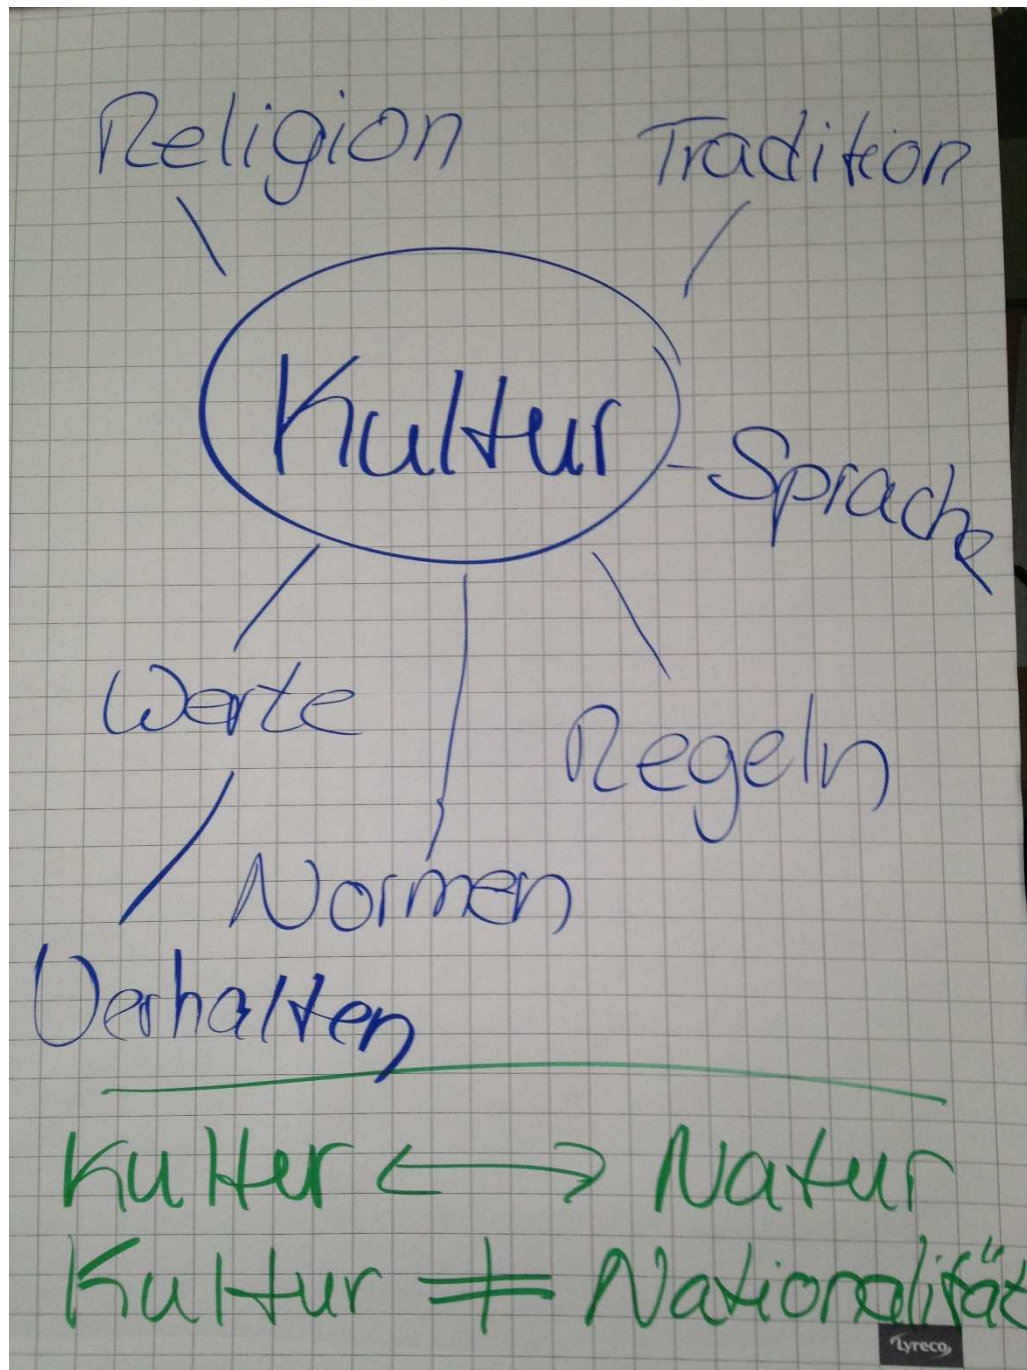 Religion
Tradition
Kultur
Sprache
Werte
Regeln
Normen
Verhalten
Kultur ↔ Natur
Kultur ≠ Nationalität
Lyreco